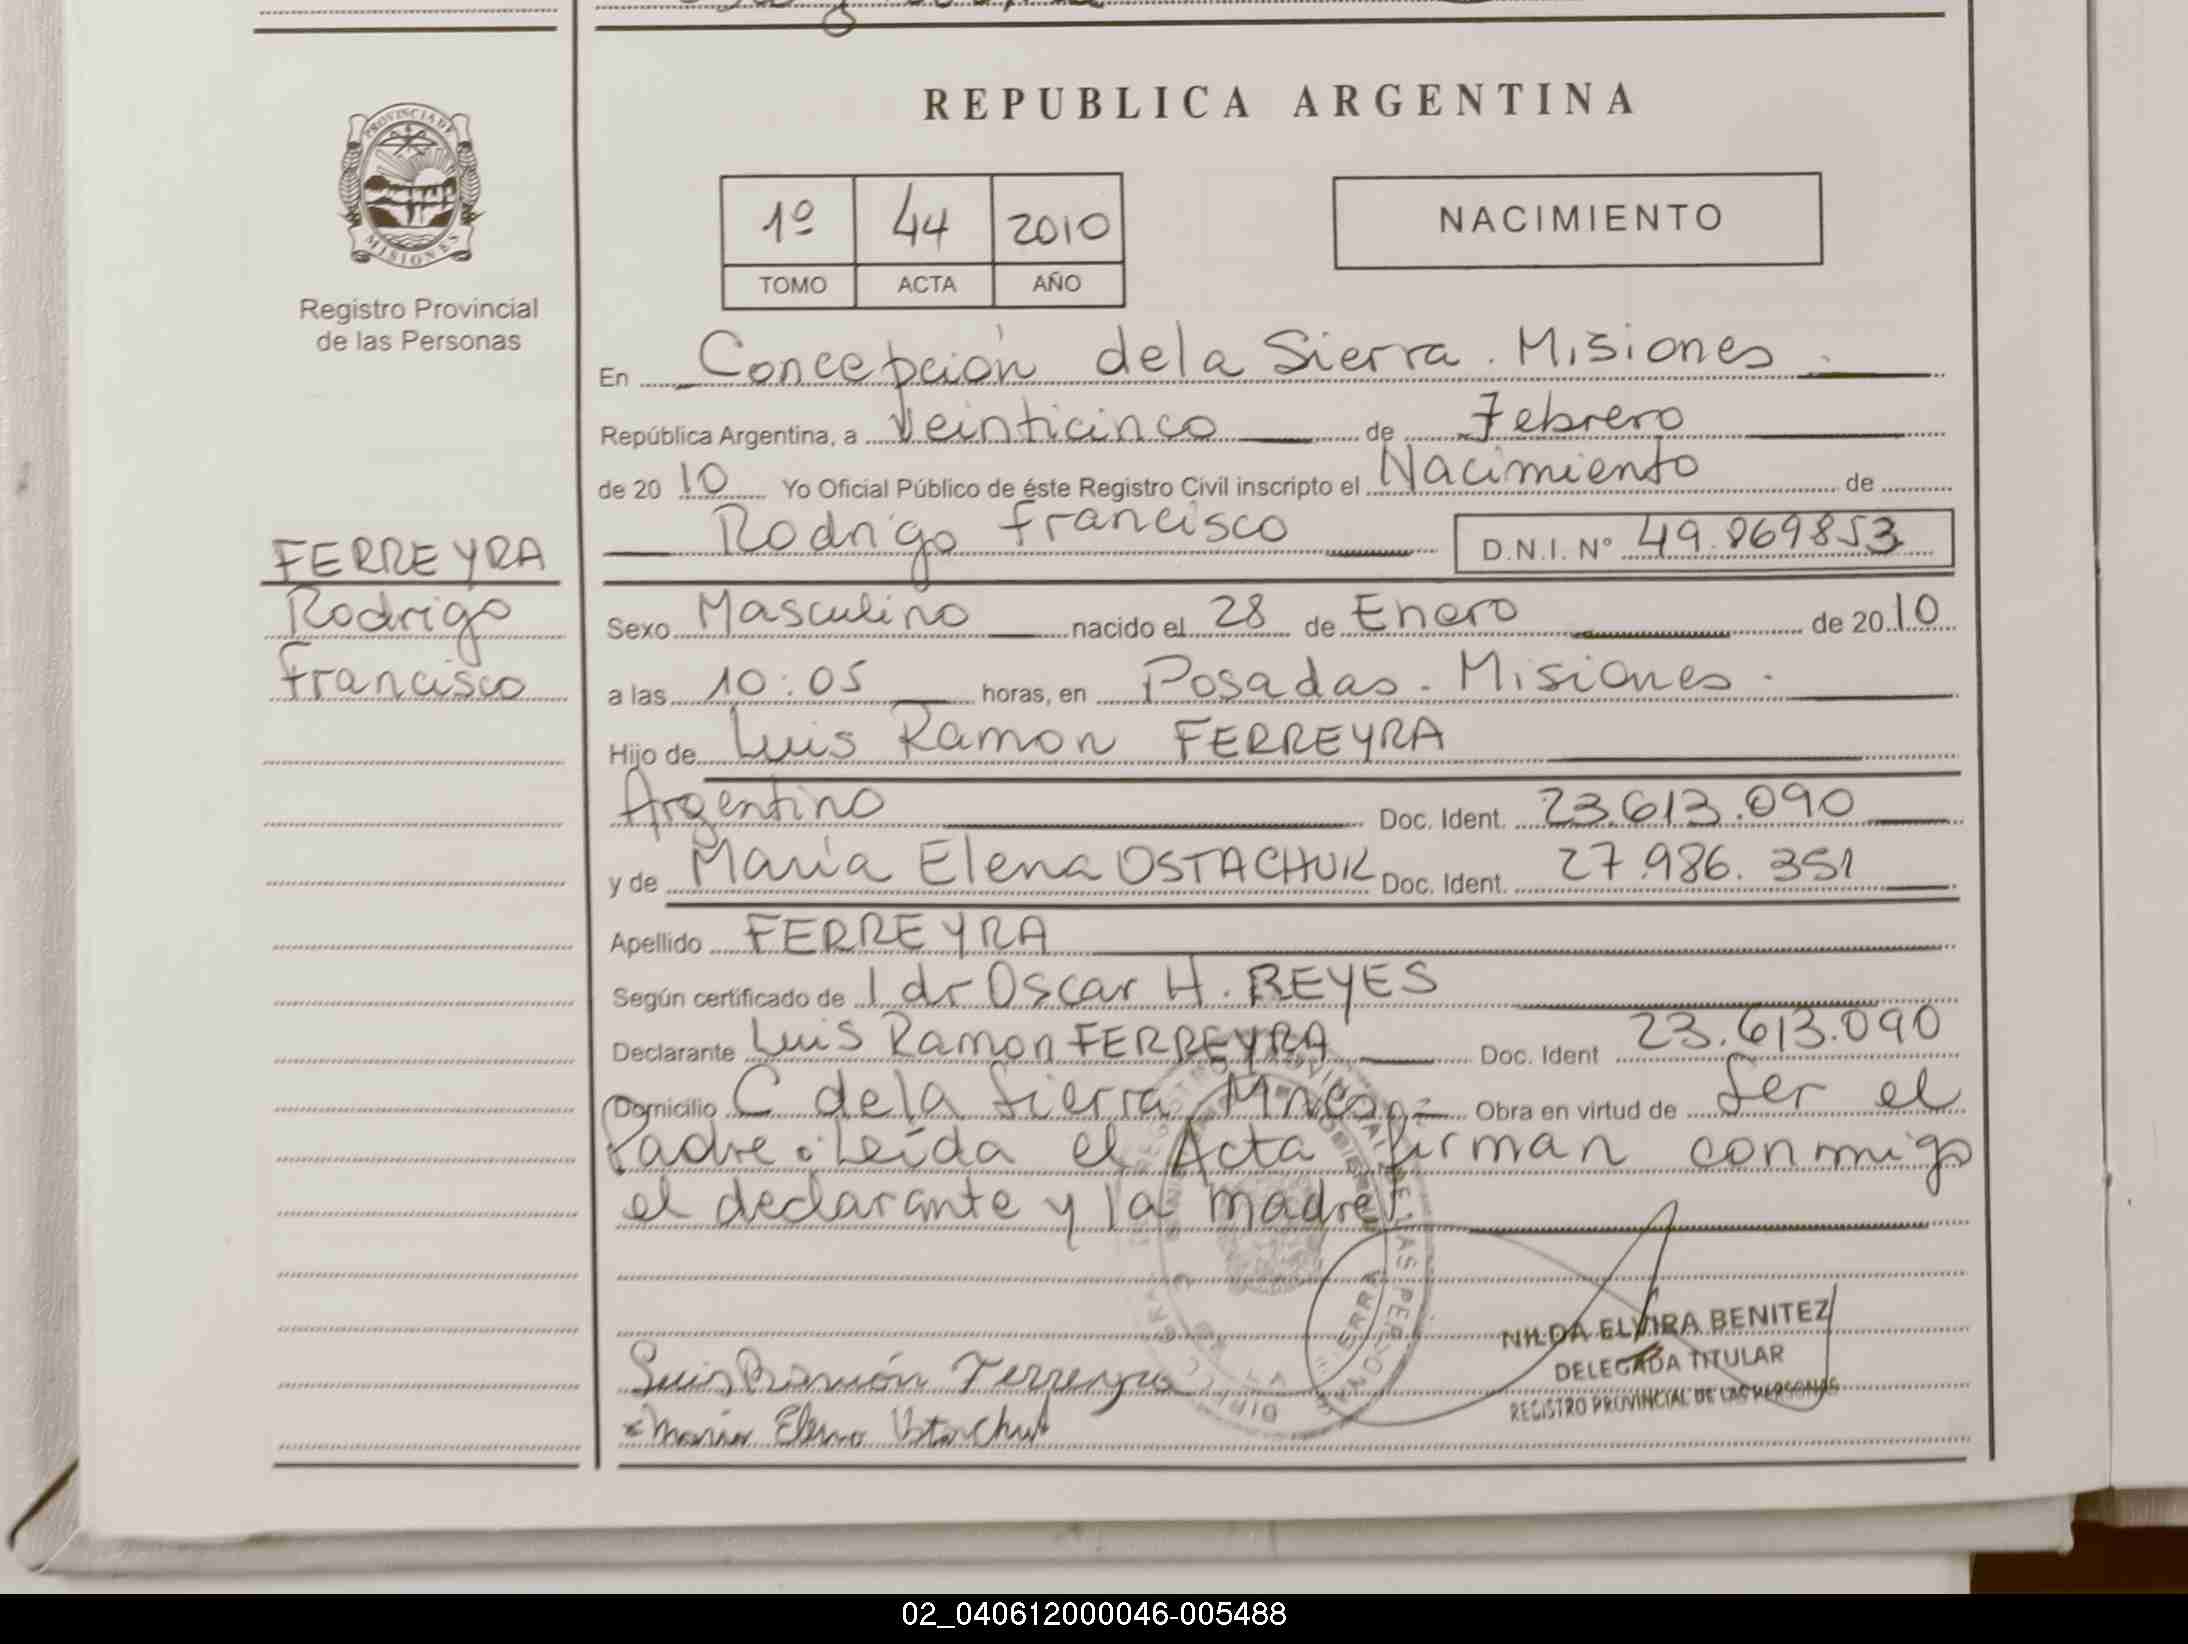 REPUBLICA ARGENTINA
PROVINCIA DE
MISIONES
Registro Provincial
de las Personas
1º 44 2010
TOMO ACTA AÑO
NACIMIENTO
En Concepción de la Sierra. Misiones.
República Argentina, a Veinticinco de Febrero
de 2010 Yo Oficial Público de éste Registro Civil inscripto el Nacimiento de
Rodrigo Francisco D.N.I. Nº 49.869853
FERREYRA
Rodrigo
Francisco
Sexo Masculino nacido el 28 de Enero de 2010
a las 10:05 horas, en Posadas. Misiones.
Hijo de Luis Ramon FERREYRA
Argentino Doc. Ident. 23.613.090
y de Maria Elena OSTACHUK Doc. Ident. 27.986.351
Apellido FERREYRA
Según certificado de l dr Oscar H. REYES
Declarante Luis Ramon FERREYRA Doc. Ident 23.613.090
Domicilio C de la Sierra Mnes Obra en virtud de Ser el
Padre. Leída el Acta firman conmigo
el declarante y la madre
NILDA ELVIRA BENITEZ
DELEGADA TITULAR
REGISTRO PROVINCIAL DE LAS PERSONAS
Luis Ramón Ferreyra
Maria Elena Ostachuk
02_040612000046-005488